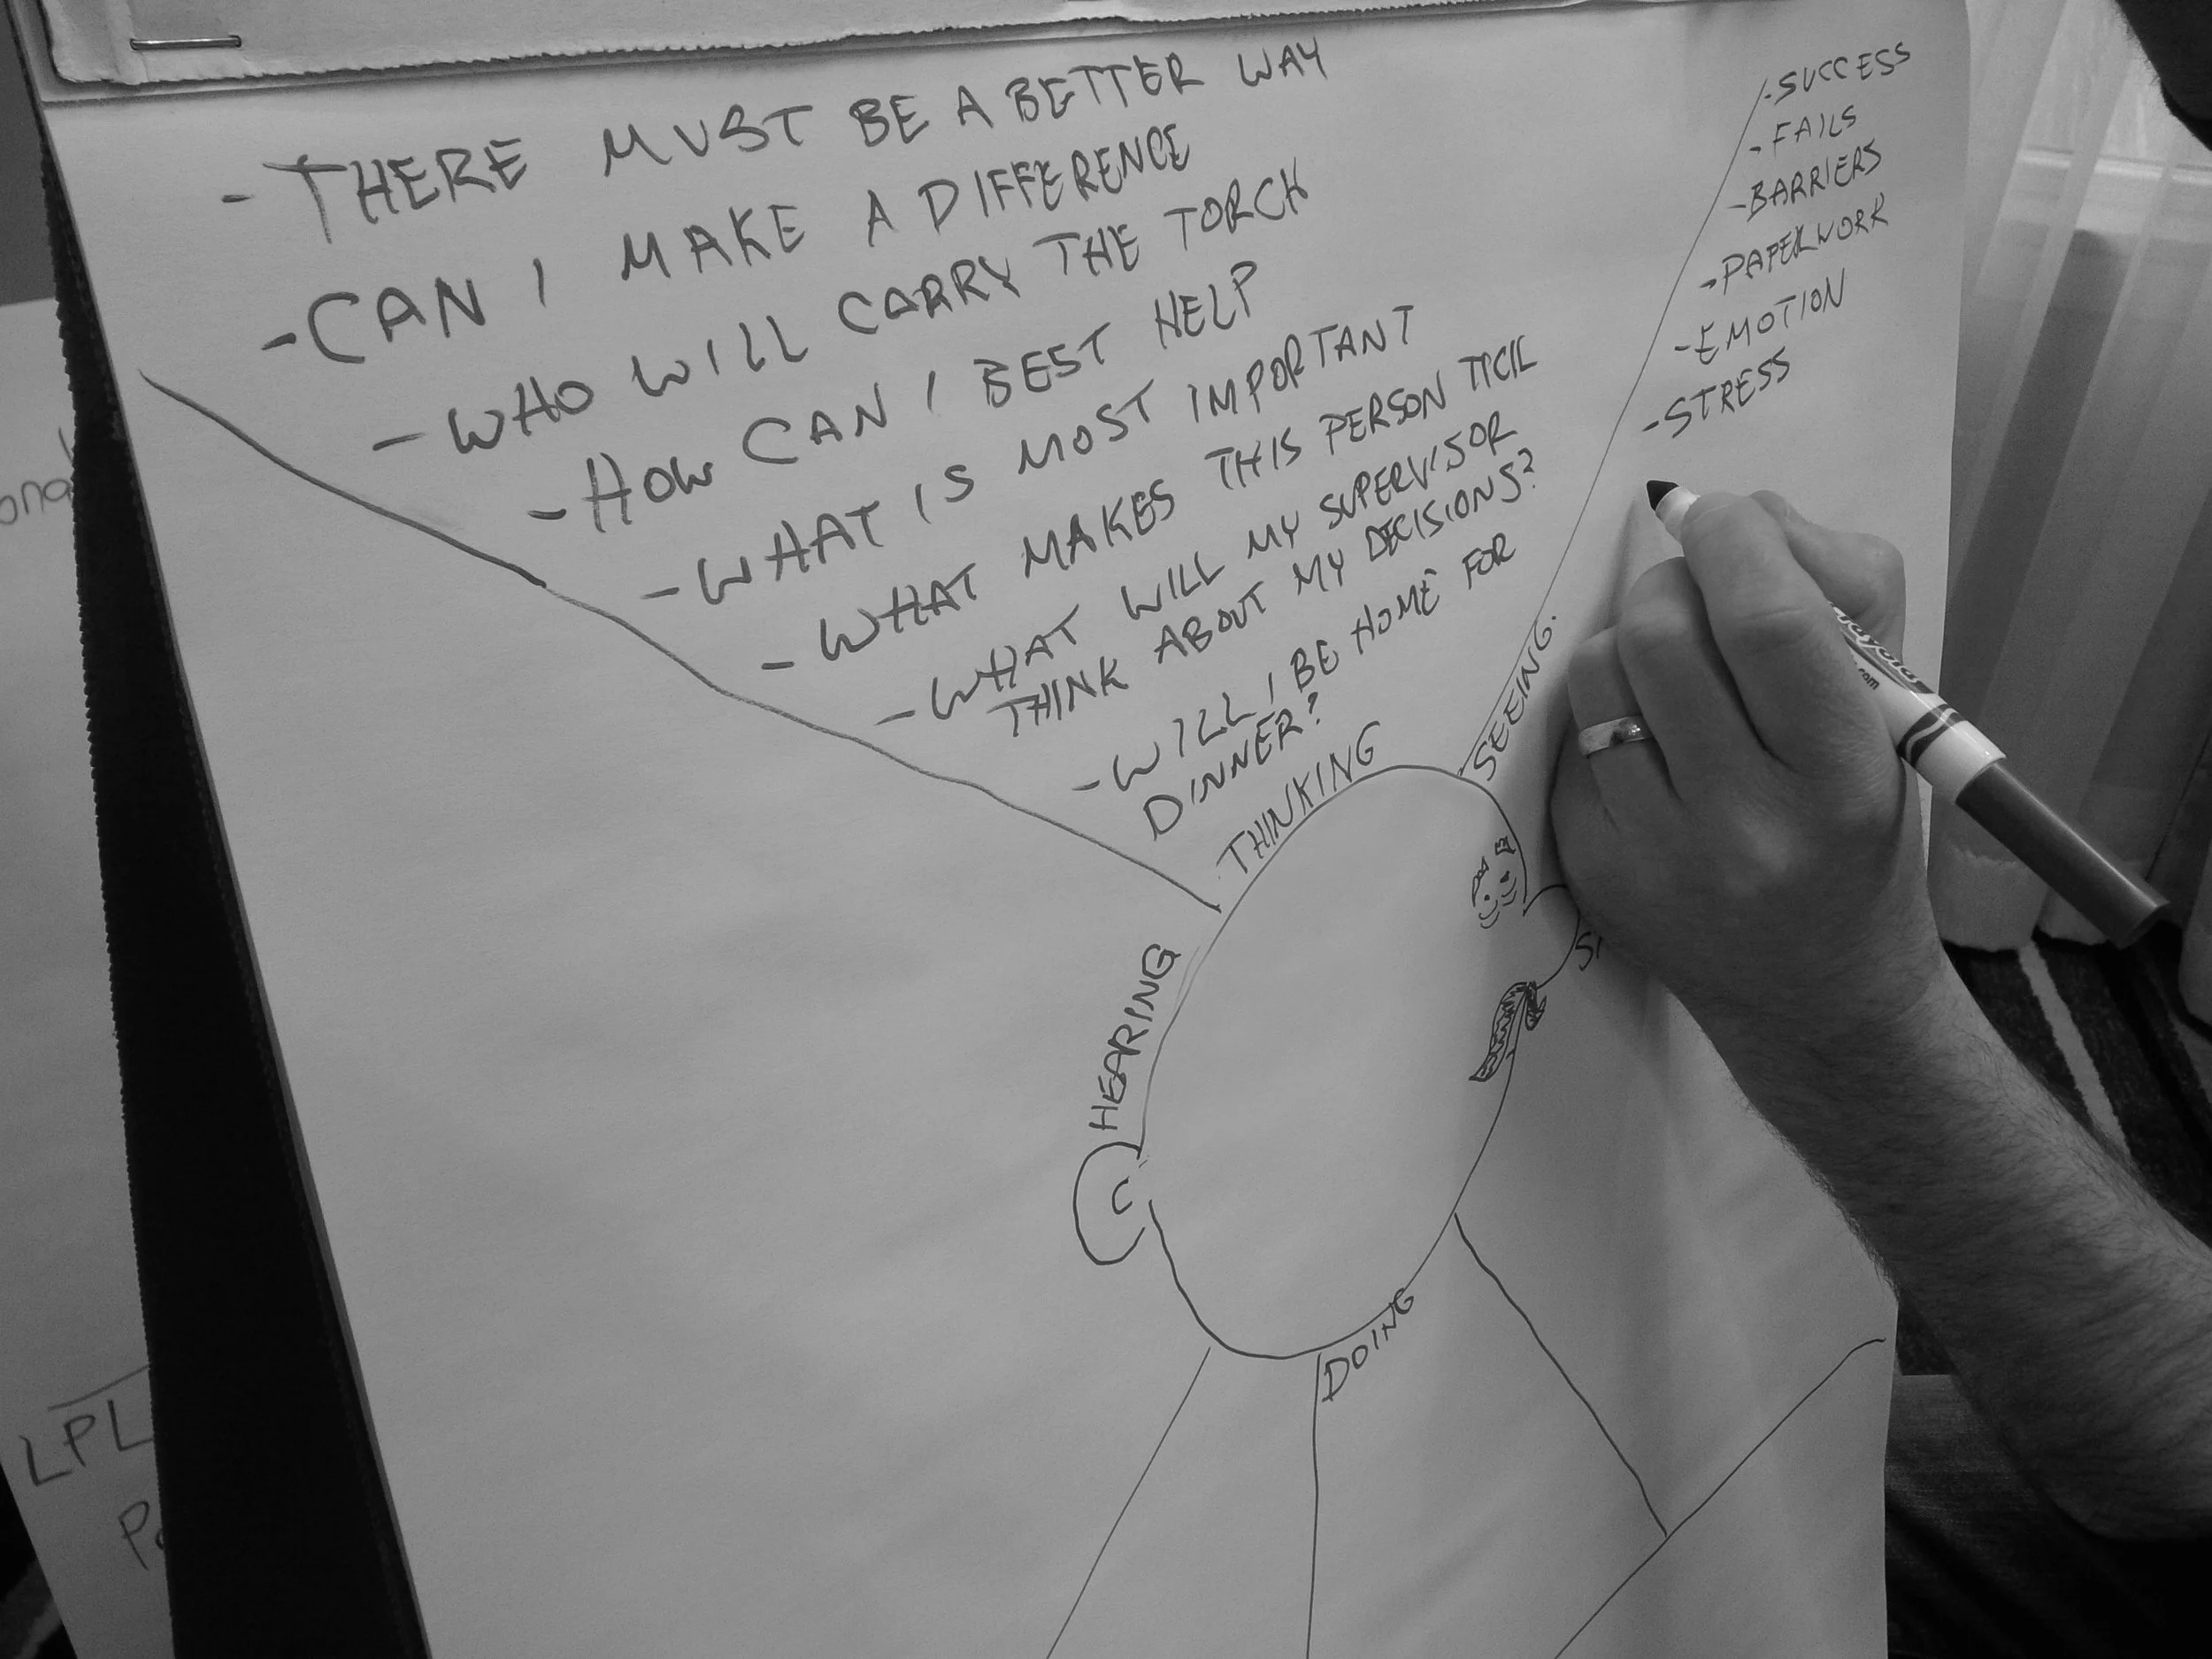 - THERE MUST BE A BETTER WAY
- CAN I MAKE A DIFFERENCE
- WHO WILL CARRY THE TORCH
- HOW CAN I BEST HELP
- WHAT IS MOST IMPORTANT
- WHAT MAKES THIS PERSON TICK
- WHAT WILL MY SUPERVISOR
THINK ABOUT MY DECISIONS?
- WILL I BE HOME FOR
DINNER?
THINKING
SEEING.
- SUCCESS
- FAILS
- BARRIERS
- PAPERWORK
- EMOTION
- STRESS
HEARING
DOING
LPL